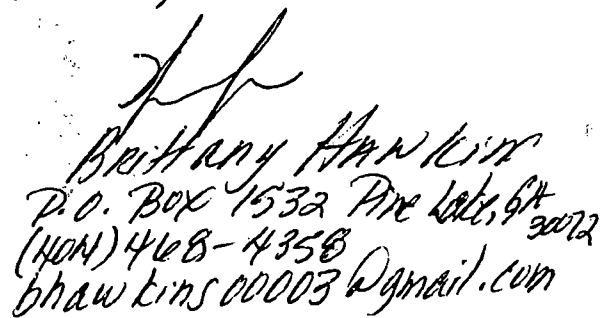 Brittany Hawkins
P.O. Box 1532 Pine Lake, GA 30072
(404) 468-4358
bhawkins00003@gmail.com